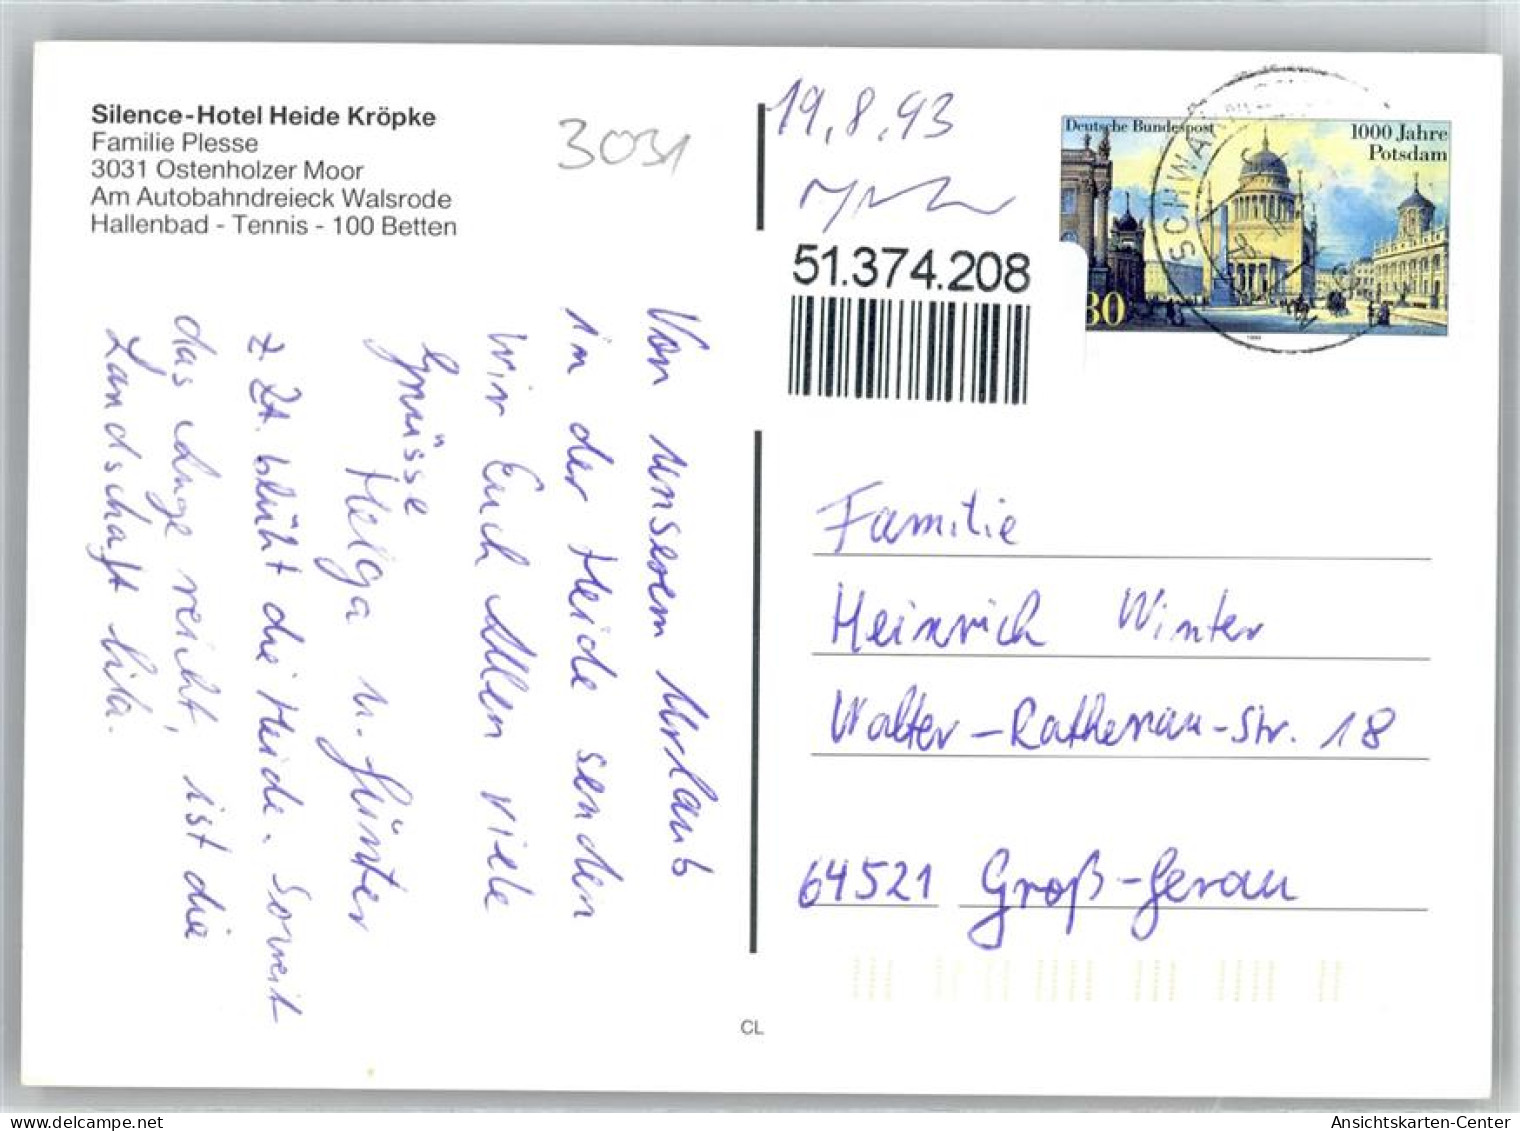 Silence-Hotel Heide Kröpke
Familie Plesse
3031 Ostenholzer Moor
Am Autobahndreieck Walsrode
Hallenbad - Tennis - 100 Betten
3031
Von unserem Urlaub
in der Heide senden
wir Euch Allen viele
Grüsse
Helga u. Günter
z. Zt. blüht die Heide. Soweit
das Auge reicht, ist die
Landschaft lila.
19.8.93
51.374.208
Deutsche Bundespost
1000 Jahre
Potsdam
80
1993
Familie
Heinrich Winter
Walter-Rathenau-Str. 18
64521 Groß-Gerau
CL
Ansichtskarten-Center